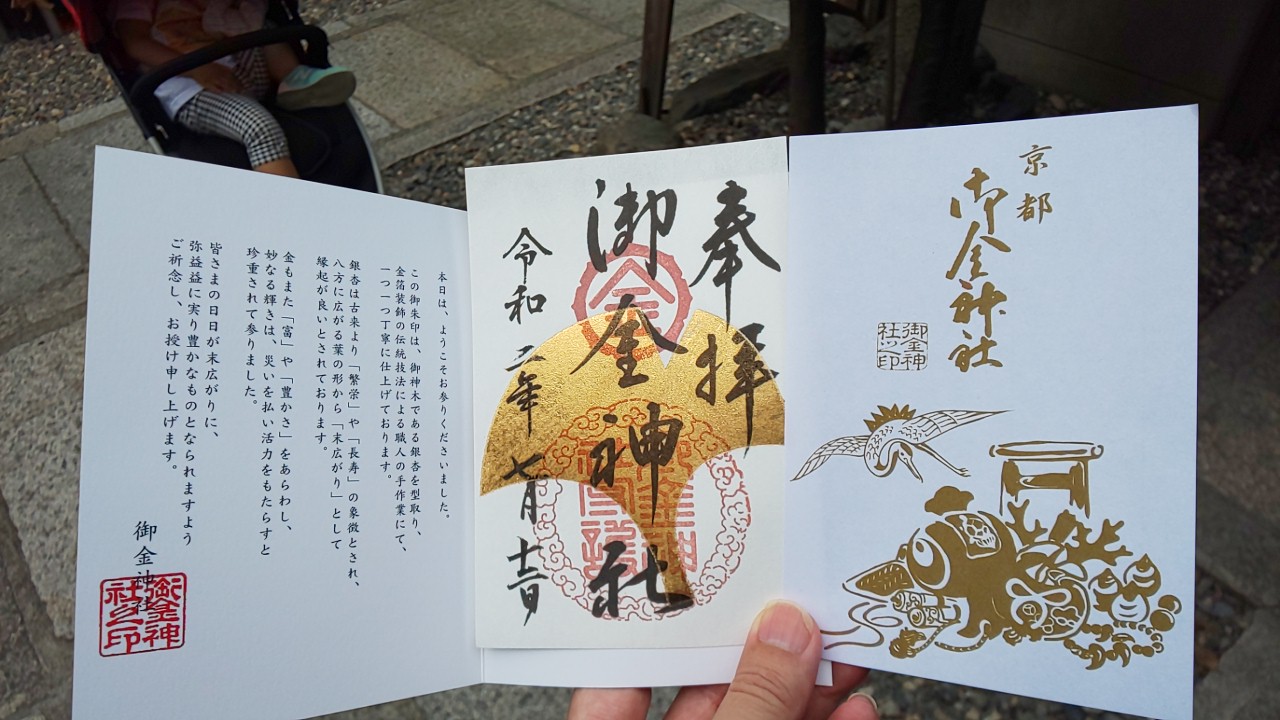 京都
御金神社
御金神
社之印
奉拝
御金神社
金
令和二年七月十三日
本日は、ようこそお参りくださいました。
この御朱印は、御神木である銀杏を型取り、
金箔装飾の伝統技法による職人の手作業にて、
一つ一つ丁寧に仕上げております。
銀杏は古来より「繁栄」や「長寿」の象徴とされ、
八方に広がる葉の形から「末広がり」として
縁起が良いとされております。
金もまた「富」や「豊かさ」をあらわし、
妙なる輝きは、災いを払い活力をもたらすと
珍重されて参りました。
皆さまの日日が末広がりに、
弥益益に実り豊かなものとなられますよう
ご祈念し、お授け申し上げます。
御金神社
御金神
社之印